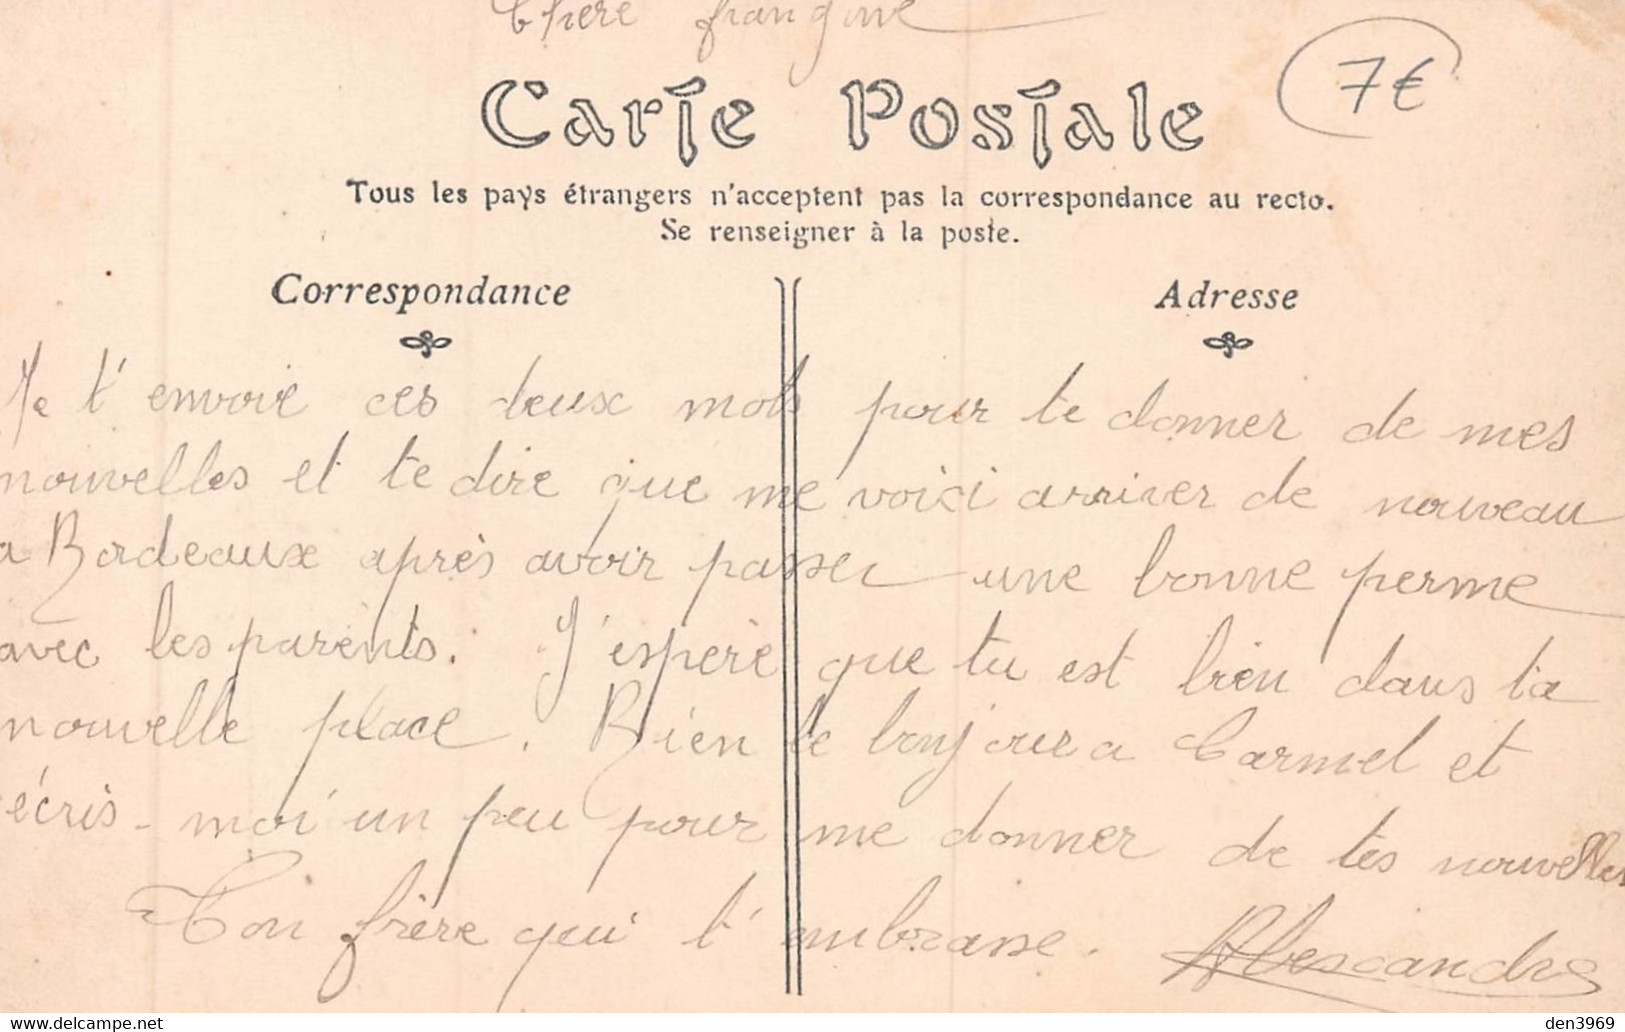 Chère frangine
7€
Carte Postale
Tous les pays étrangers n'acceptent pas la correspondance au recto.
Se renseigner à la poste.
Correspondance
Adresse
Je t'envoie ces deux mots pour te donner de mes
nouvelles et te dire que me voici arriver de nouveau
a Bordeaux après avoir passer une bonne perme
avec les parents. J'espère que tu est bien dans ta
nouvelle place. Bien le bonjour a Carmel et
écris-moi un peu pour me donner de tes nouvelles
Ton frère qui t'embrasse. Alexandre
delcampe.net
den3969